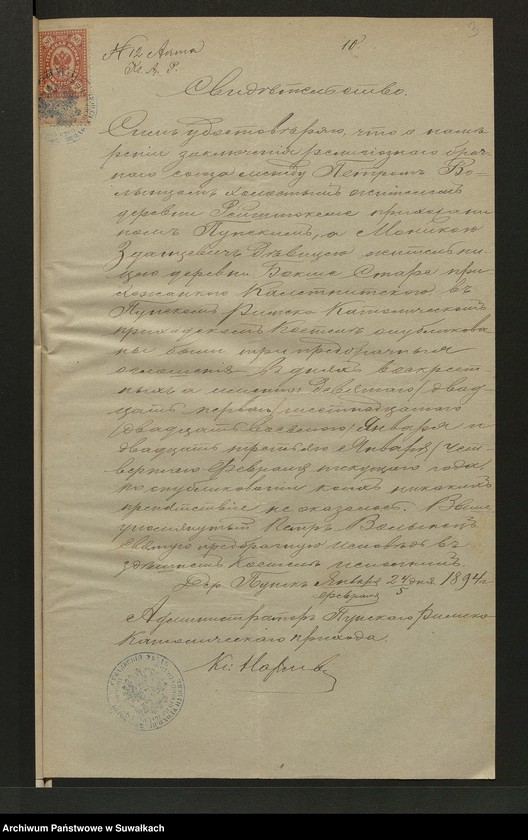 3
10
N 12 Акта
К. А. Р.
Свидѣтельство.
Симъ удостовѣряю, что о намѣ-
реніи заключенія религіознаго брач-
наго союза между Петромъ Во-
лынцемъ холостымъ жителемъ
деревни прихожани
номъ Пунскимъ, а Моникою
Зданцевичъ дѣвицею жительни-
цею деревни Бокше Старе при-
хожанкою въ
Пунскомъ Римско Католическомъ
приходскомъ костелѣ опубликова
ны были три предбрачныя
оглашенія въ дняхъ воскрес-
ныхъ а именно: девятаго / двад-
цать перваго шестнадцатаго
/ двадцать восьмого / Января и
двадцать третьяго Января / чет-
вертаго Февраля текущаго года,
по опубликованіи коихъ никакихъ
препятствіе не оказалось. Выше
упомянутый Петръ Волынецъ
предбрачную исповѣдь въ
здѣшнемъ костелѣ исполнилъ.
Дер. Пунскъ Января 24 дня 1894 г.
Февраля 5
Администраторъ Пунскаго Римско
Католическаго прихода
Кс:
Archiwum Państwowe w Suwałkach